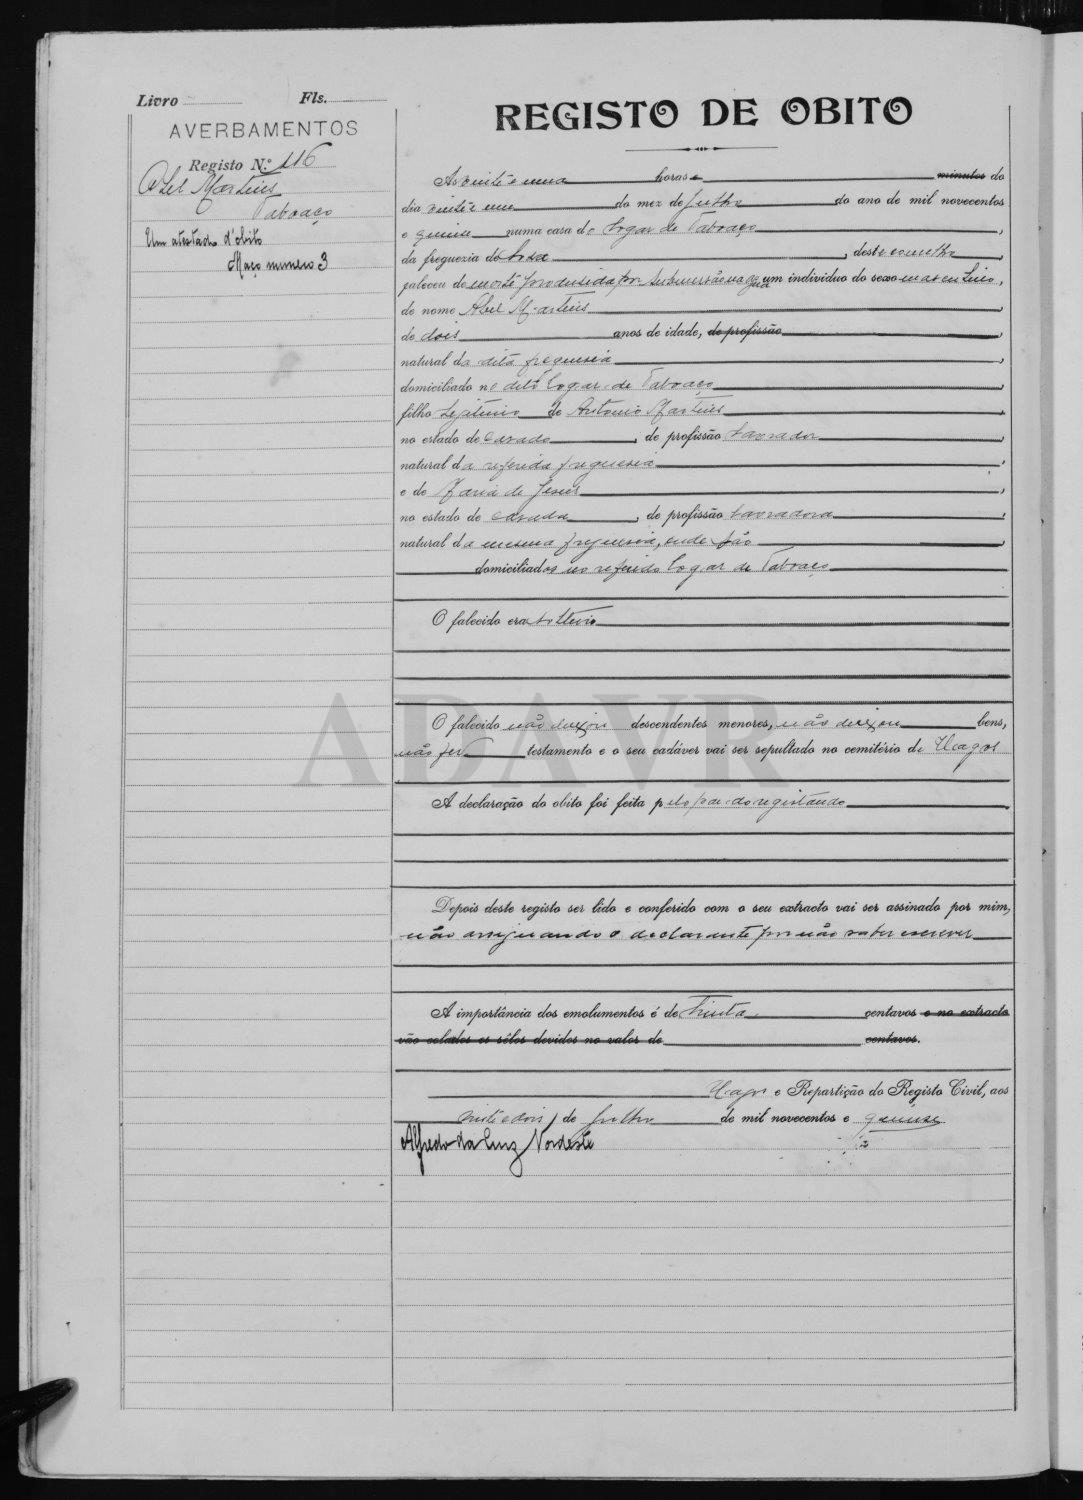 Livro Fls.
AVERBAMENTOS
Registo N.º 116
Abel Martins
Taboaço
Um atestado d'obito
Maço numero 3
REGISTO DE OBITO
Ás vinte e uma horas e minutos do
dia vinte e um do mez de Julho do ano de mil novecentos
e quinse numa casa do Logar de Taboaço,
da freguezia de Sosa, deste concelho,
faleceu de morte produsida por submersão na agua um individuo do sexo masculino,
de nome Abel Martins,
de dois anos de idade, de profissão
natural da dita freguesia,
domiciliado no dito Logar de Taboaço,
filho Legitimo de Antonio Martins,
no estado de casado, de profissão Lavrador,
natural da referida freguesia,
e de Maria de Jesus,
no estado de casada, de profissão Lavradora,
natural da mesma freguesia, onde são,
domiciliados no referido Logar de Taboaço
O falecido era solteiro
ADAVR
O falecido não deixou descendentes menores, não deixou bens,
não fez testamento e o seu cadáver vai ser sepultado no cemitério de Vagos
A declaração do obito foi feita pelo pae do registando
Depois deste registo ser lido e conferido com o seu extracto vai ser assinado por mim,
não assignando o declarante por não saber escrever
A importância dos emolumentos é de trinta centavos e no extracto
vão colados os sêlos devidos no valor de centavos.
Vagos e Repartição do Registo Civil, aos
vinte e dois de Julho de mil novecentos e quinse
Alfredo da Cruz Nordeste